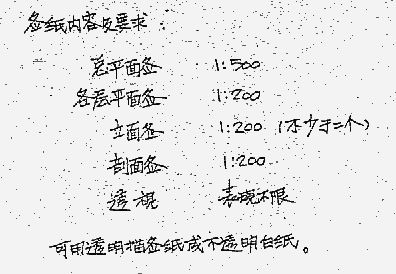 图纸内容及要求：
总平面图 1:500
各层平面图 1:200
立面图 1:200（不少于二个）
剖面图 1:200
透视 表现不限
可用透明描图纸或不透明白纸。